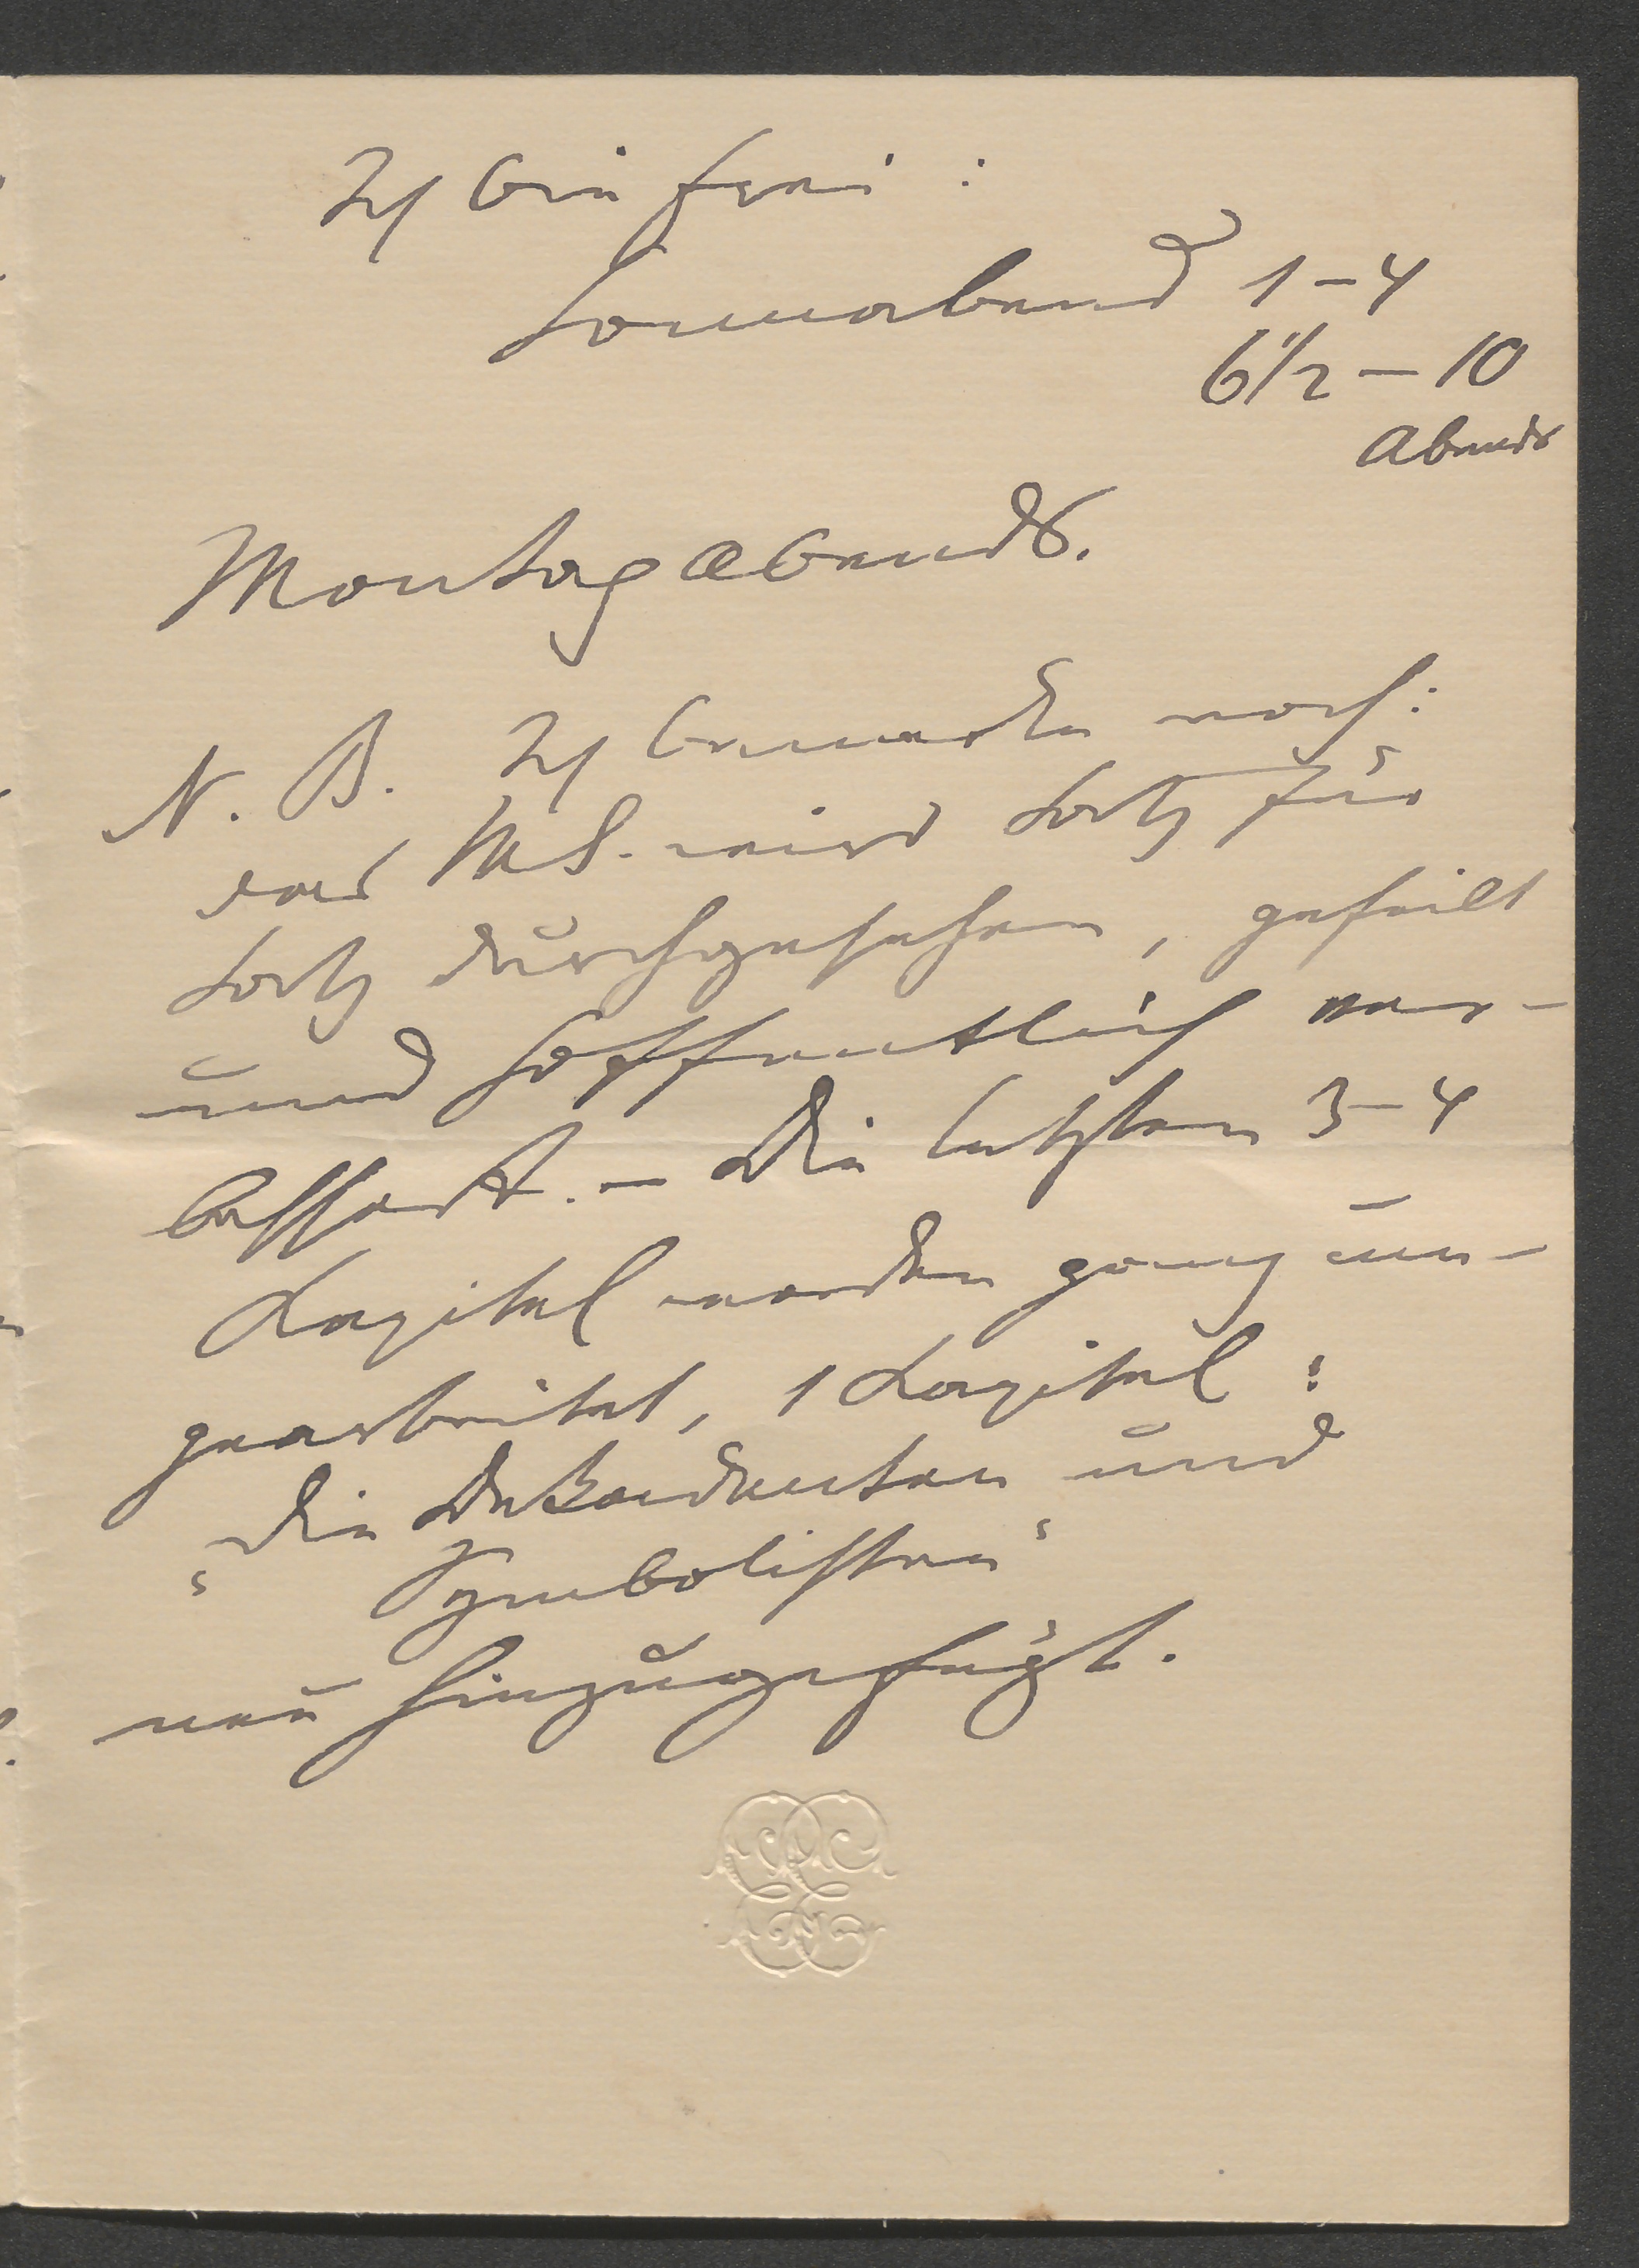 Ich bin frei:
Sonnabend 1–4
6 1/2 – 10
Abends
Montag Abends.
N. B. Ich bemerke noch:
das MS. wird Satz für
Satz durchgesehen, gefeilt
und hoffentlich ver-
bessert. – Die letzten 3–4
Kapitel werden ganz um-
gearbeitet, 1 Kapitel:
„Die Dekadenten und
Symbolisten“
neu hinzugefügt.